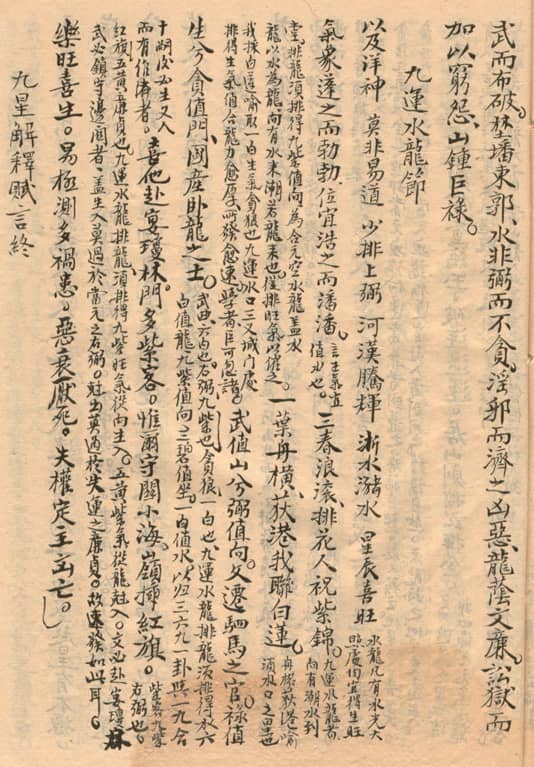 武而布破。墊墦東郭、水非弼而不貪。淫邪而濟之凶惡、龍蔭文廉。訟獄而
加以窮怨、山鍾巨祿。
九運水龍節
以及洋神 莫非易道 少排上弼 河漢騰輝 浙水潑水 星辰喜旺 水龍凡有水光大
照處均宜得生旺
氣象蓬之而勃勃、位宜浩之而潘潘。言王氣宜
值水也。三春浪滾、排花人祝紫錦。九運水龍、
向有潮水到
堂、排龍須排得九紫值向、為合元空水龍、蓋水
龍以水為龍、向有水來潮、若龍來也、從排旺氣以催之。一葉舟橫、荻港我聯白蓮。舟橫荻港喻
須水口之里也
我採白蓮喻取一白生氣貪狼也、九運水口三叉城門處
排得生氣值合龍力愈厚、所發愈速、學者巨可忽諸。武值山兮弼值向。文遷駟馬之官、祿值
生兮貪值門、國產卧龍之士。武曲六白也、右弼九紫也、貪狼一白也、九運水龍排龍須排得於六
白值龍、九紫值向、三碧值坐、一白值水、以归三六九一卦與一九合
十、嗣後必生文人
而有作為者。喜他赴宴瓊林、門多紫客。惟爾守關小海、嶺掃紅旗。紫客九紫
右弼也。
紅旗五黃廉貞也、九運水龍排龍、須排得九紫旺氣從向主入。五黃紫氣從龍尅入。文必赴宴瓊林
武必鎮守邊圉者、蓋生入莫過於當元之右弼。尅出莫過於失運之廉貞。故速發如此耳。
樂旺喜生。易極測多禍患。惡衰厭死。失權定主立亡。
九星解釋賦言終